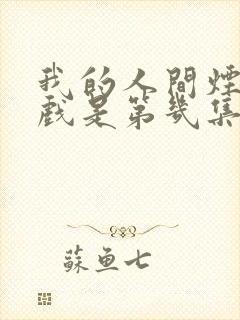 我的人間煙
戲是第幾集
蘇魚七